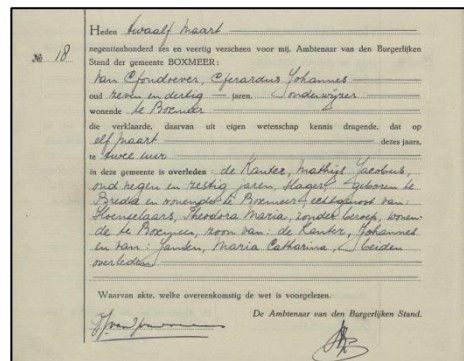 Heden twaalf Maart
№ 18
negentienhonderd zes en veertig verscheen voor mij, Ambtenaar van den Burgerlijken
Stand der gemeente BOXMEER:
van Gerardus Johannes
oud zeven en dertig jaren, onderwijzer
wonende te Boxmeer
die verklaarde, daarvan uit eigen wetenschap kennis dragende, dat op
elf Maart dezes jaars,
te twee uur
in deze gemeente is overleden: de Kanter, Mathijs Jacobus,
oud negen en zestig jaren, slager, geboren te
Breda en wonende te Boxmeer, echtgenoot van:
Theodora Maria, zonder beroep, wonen-
de te Boxmeer, zoon van: de Kanter, Johannes
en van: Jansen, Maria Catharina, beiden
overleden
Waarvan akte, welke overeenkomstig de wet is voorgelezen.
De Ambtenaar van den Burgerlijken Stand.